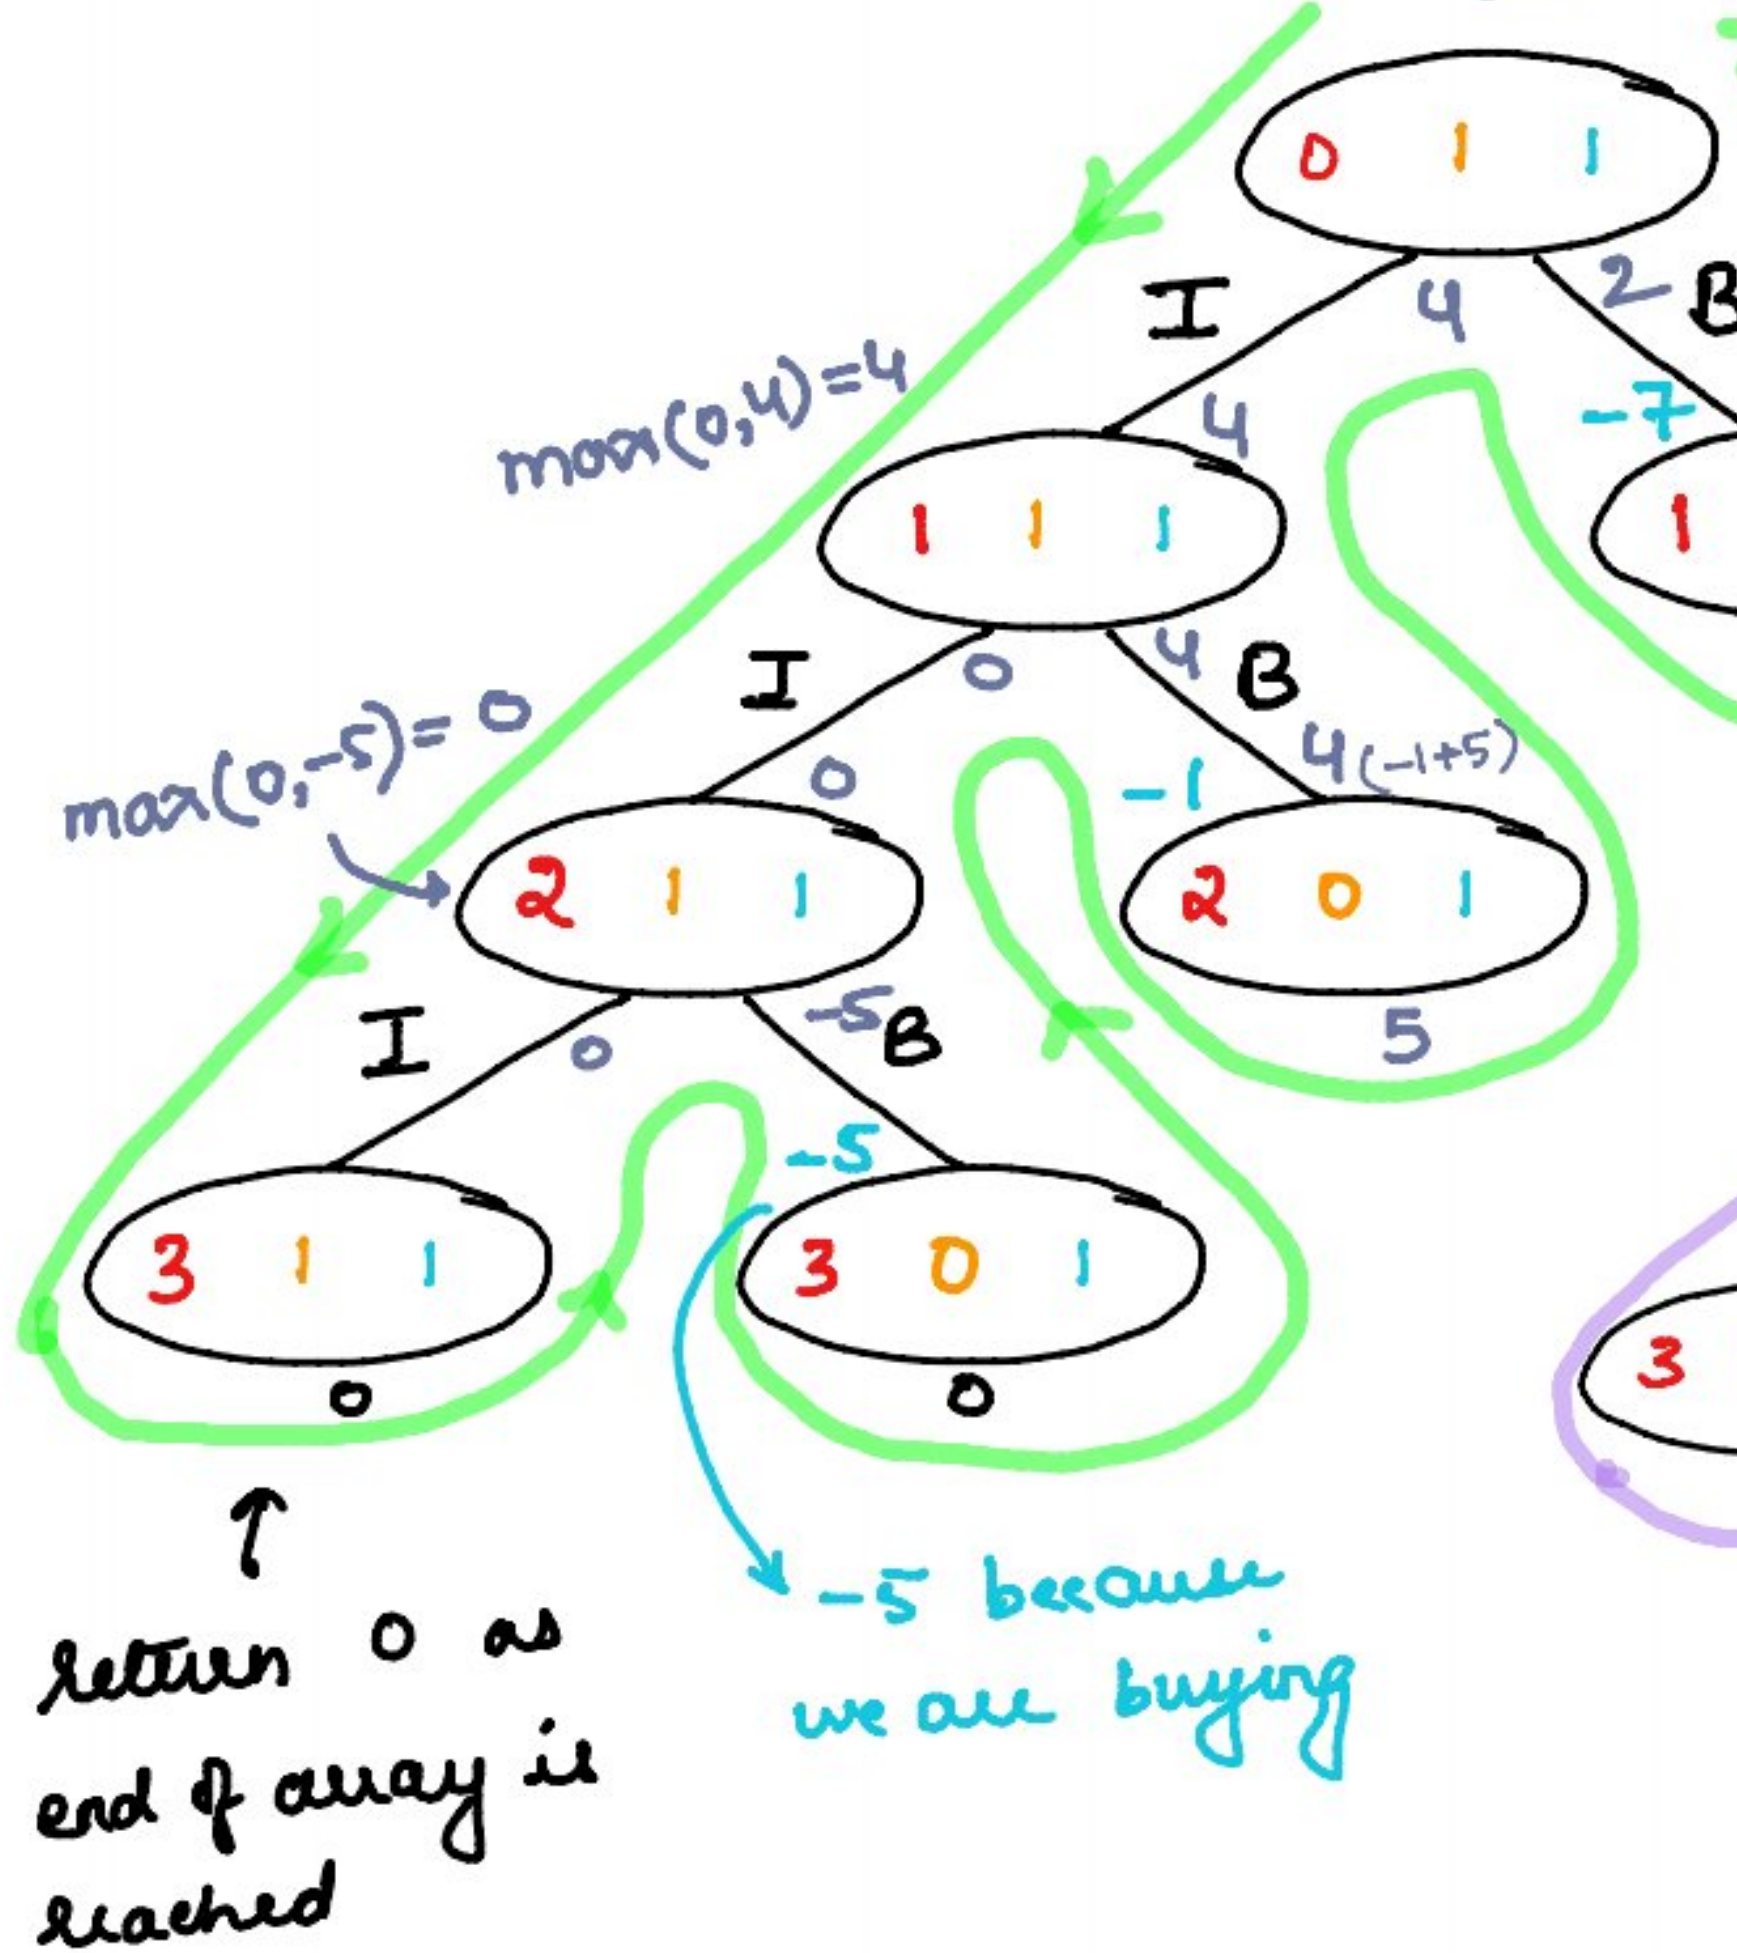 0 1 1
I 4 2 B
max(0,4)=4
4 -7
1 1 1 1
I 0 4 B
max(0,-5)=0
0 -1 4(-1+5)
2 1 1 2 0 1
I 0 -5 B 5
-5
3 1 1 3 0 1
3
0 0
return 0 as
end of array is
reached
-5 because
we are buying